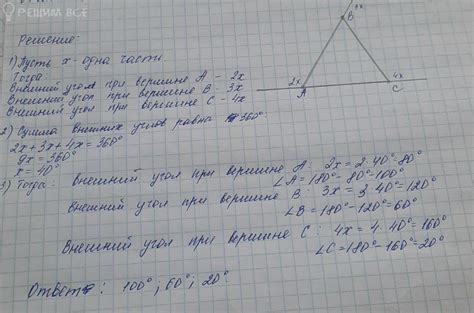 РЕШИМ ВСЁ
Решение:
1) Пусть x - одна часть.
Тогда:
Внешний угол при вершине A - 2x
Внешний угол при вершине B - 3x
Внешний угол при вершине C - 4x
3x
B
2x
A
4x
C
2) Сумма внешних углов равна 360°
2x+3x+4x=360°
9x=360°
x=40°
3) Тогда: Внешний угол при вершине A: 2x=2·40°=80°
∠A=180°-80°=100°
Внешний угол при вершине B: 3x=3·40°=120°
∠B=180°-120°=60°
Внешний угол при вершине C: 4x=4·40°=160°
∠C=180°-160°=20°
Ответ: 100°; 60°; 20°